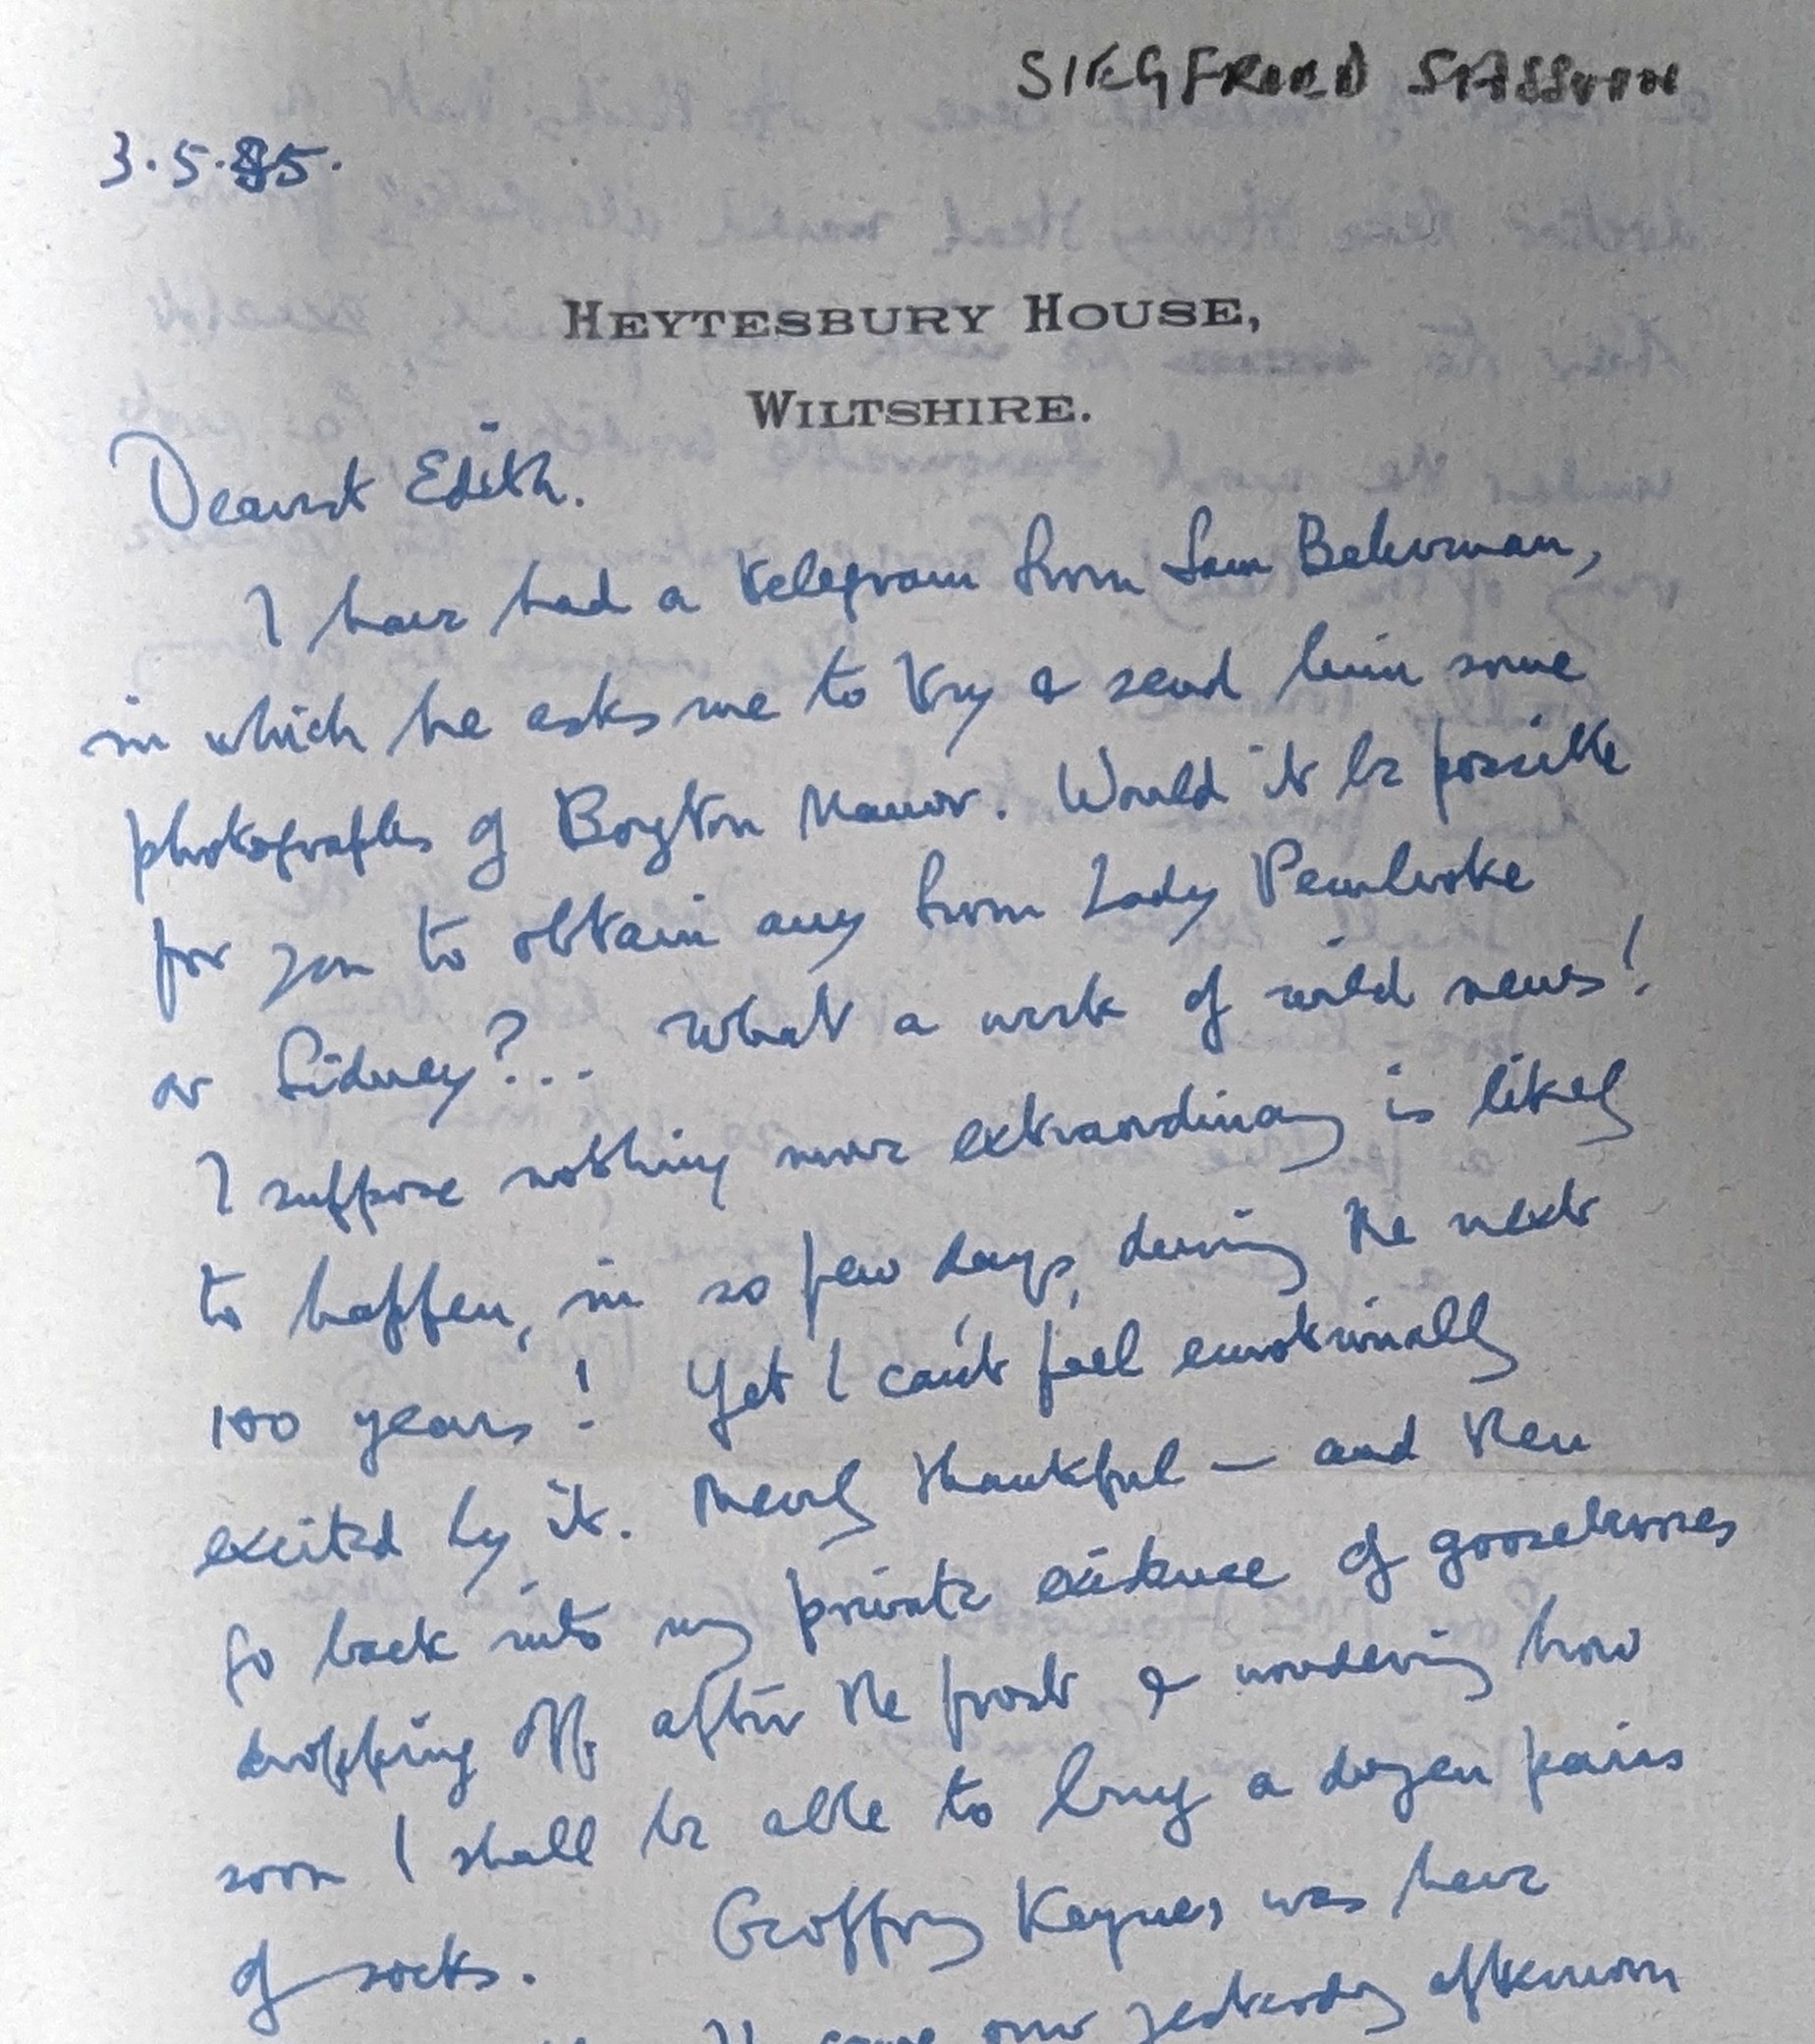 SIEGFRIED SASSOON
3.5.45.
HEYTESBURY HOUSE,
WILTSHIRE.
Dearest Edith.
I have had a telegram from Sam Behrman,
in which he asks me to try & send him some
photographs of Boyton Manor. Would it be possible
for you to obtain any from Lady Pembroke
or Sidney?... What a week of wild news!
I suppose nothing more extraordinary is likely
to happen, in so few days, during the next
100 years! Yet I can't feel emotionally
excited by it. Merely thankful — and then
go back into my private existence of gooseberries
dropping off after the frost & wondering how
soon I shall be able to buy a dozen pairs
of socks. Geoffrey Keynes was here
came over yesterday afternoon